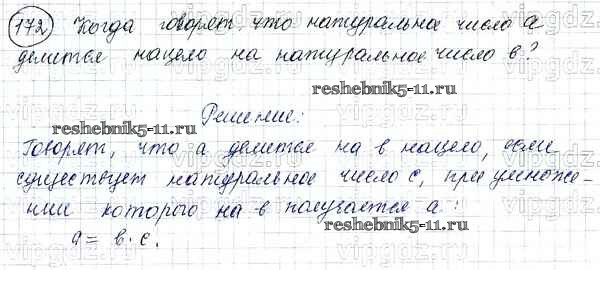 172 Когда говорят, что натуральное число a
делится нацело на натуральное число в?
reshebnik5-11.ru
Решение:
reshebnik5-11.ru
Говорят, что a делится на в нацело, если
существует натуральное число c, при умноже-
нии которого на в получается a:
a = в · c.
vipgdz.com